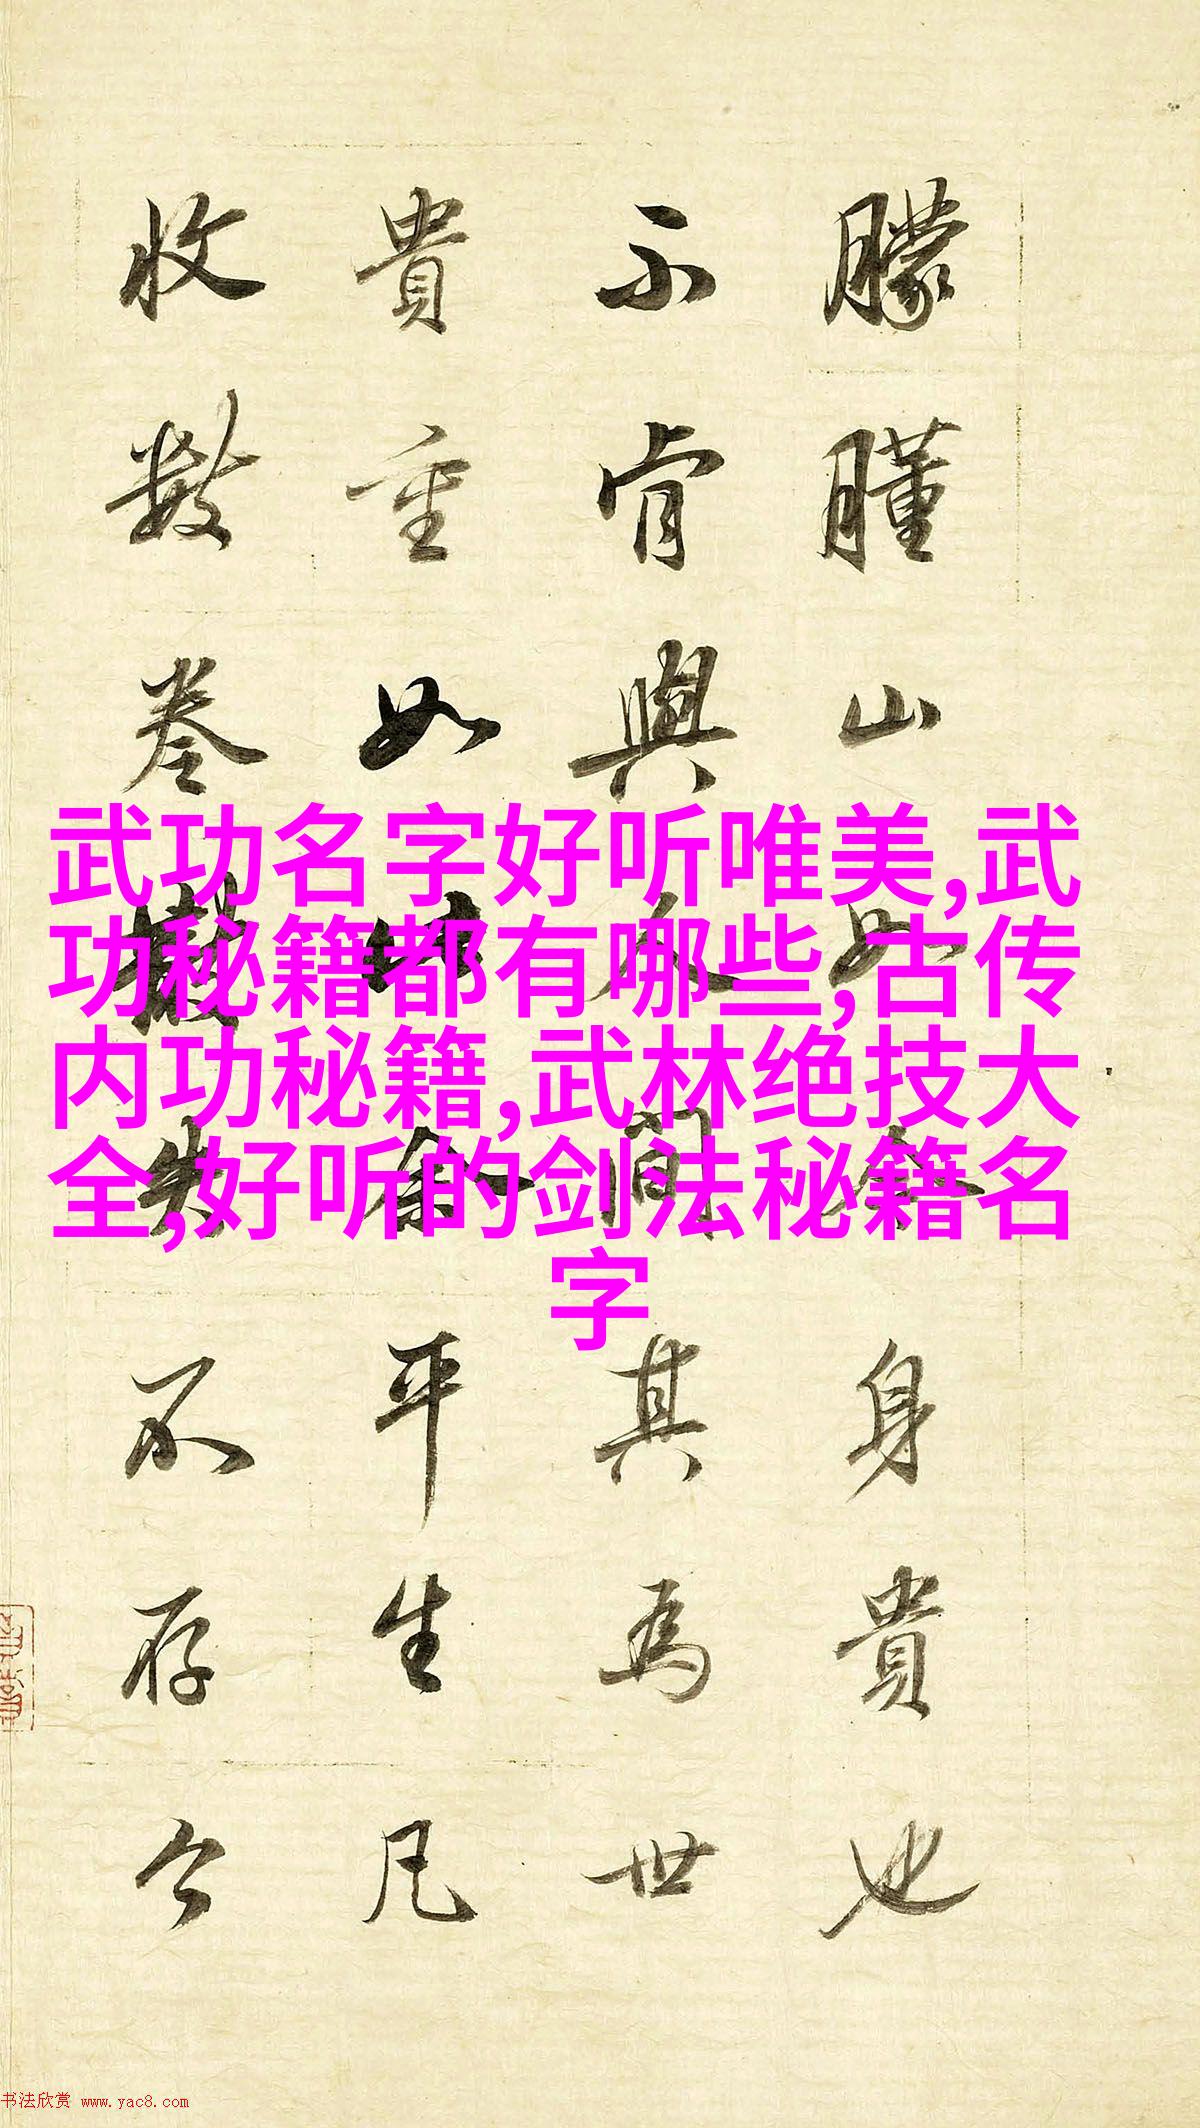 朦朣山如身貴也
不肯與人間其為世
貴重如此余平生凡
收數卷失不存今
武功名字好听唯美,武
功秘籍都有哪些,古传
内功秘籍,武林绝技大
全,好听的剑法秘籍名
字
书法欣赏 www.yac8.com